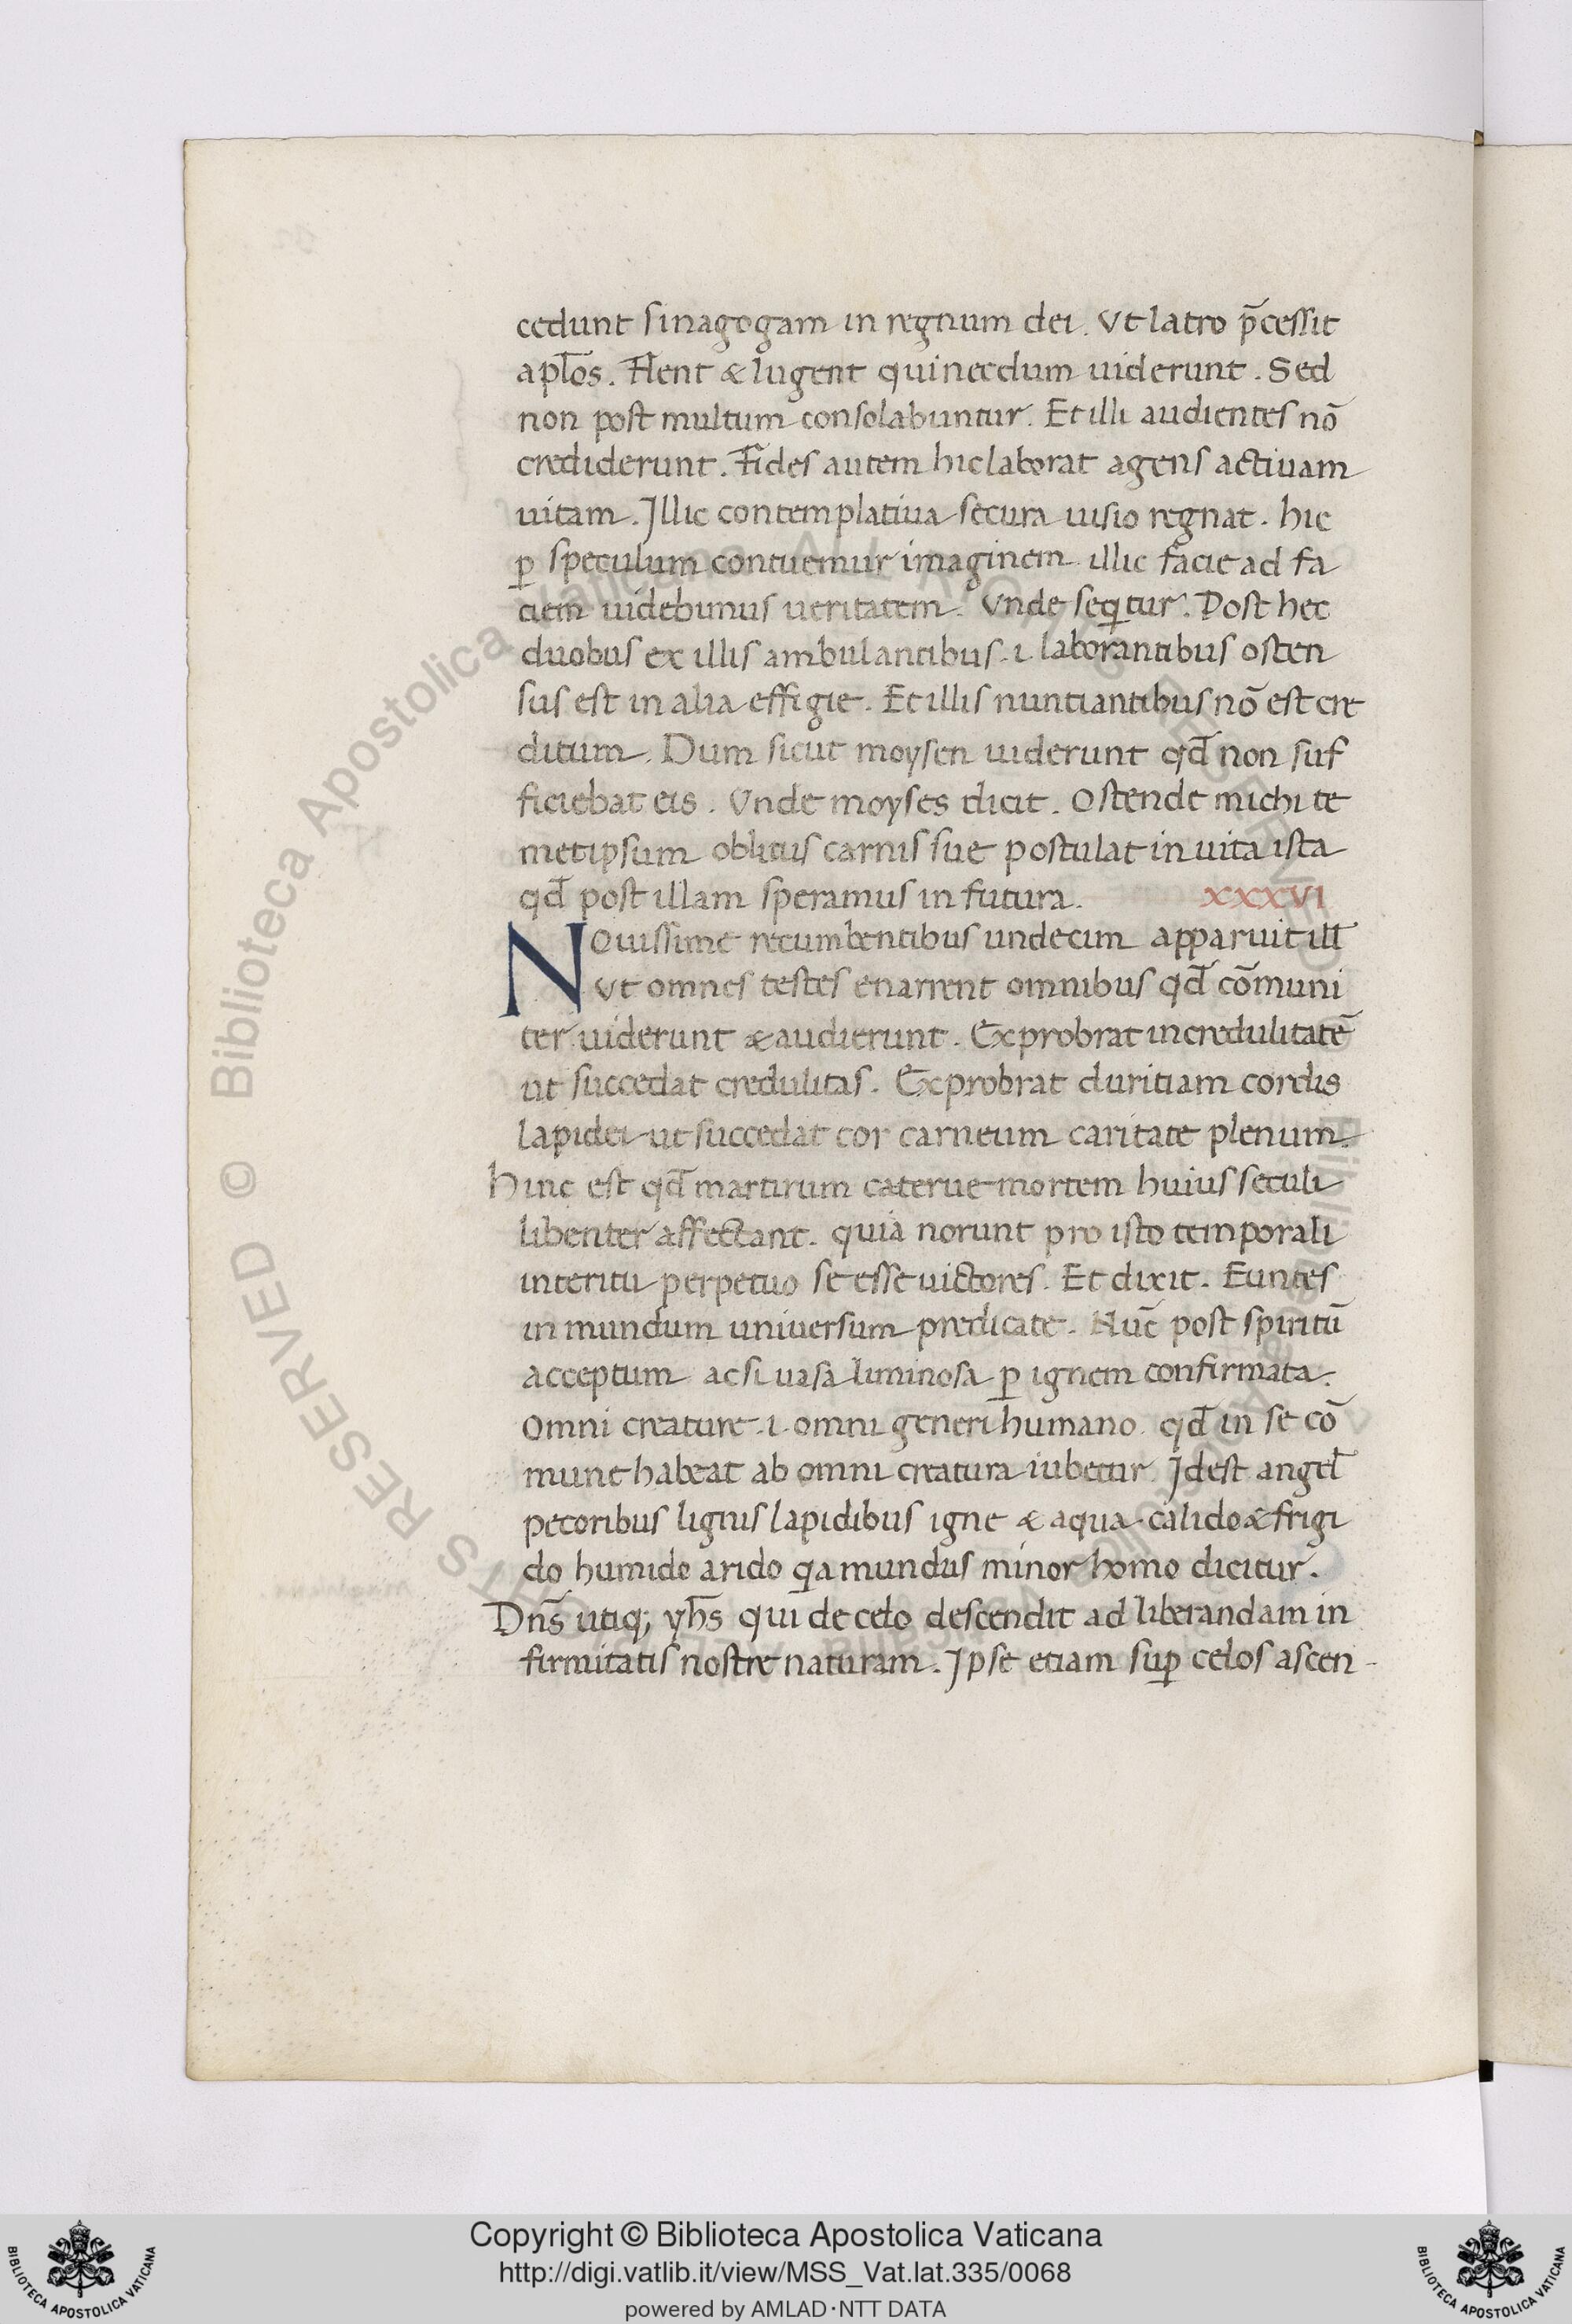 cedunt sinagogam in regnum dei. Vt latro p̄cessit
apl̄os. Flent & lugent qui necdum uiderunt. Sed
non post multum consolabuntur. Et illi audientes nō
crediderunt. Fides autem hic laborat agens actiuam
uitam. Illic contemplatiua secura uisio regnat. hic
ꝑ speculum contuemur imaginem illic facie ad fa
ciem uidebimus ueritatem. Vnde seqͥtur. Post hec
duobus ex illis ambulantibus .i. laborantibus osten
sus est in alia effigie. Et illis nuntiantibus nō est cre
ditum. Dum sicut moysen uiderunt qd̄ non suf
ficiebat eis. Vnde moyses dicit. Ostende michi te
metipsum oblitus carnis sue postulat in uita ista
qd̄ post illam speramus in futura. XXXVI
Nouissime recumbentibus undecim apparuit ill̄
Vt omnes testes enarrent omnibus qd̄ cōmuni
ter uiderunt & audierunt. Exprobrat incredulitatē
ut succedat credulitas. Exprobrat duritiam cordis
lapidei ut succedat cor carneum caritate plenum.
Hinc est qd̄ martirum caterue mortem huius seculi
libenter affectant. quia norunt pro isto temporali
interitu perpetuo se esse uictores. Et dixit. Euntes
in mundum uniuersum predicate. Nūc post spiritū
acceptum ac si uasa luminosa ꝑ ignem confirmata.
Omni creature .i. omni generi humano qd̄ in se cō
mune habeat ab omni creatura iubetur. Idest angel̄
pecoribus lignis lapidibus igne & aqua calido & frigi
do humido arido qͥa mundus minor homo dicitur.
Dn̄s utiq; yh̄s qui de celo descendit ad liberandam in
firmitatis nostre naturam. Ipse etiam suꝑ celos ascen-
Copyright © Biblioteca Apostolica Vaticana
http://digi.vatlib.it/view/MSS_Vat.lat.335/0068
powered by AMLAD·NTT DATA